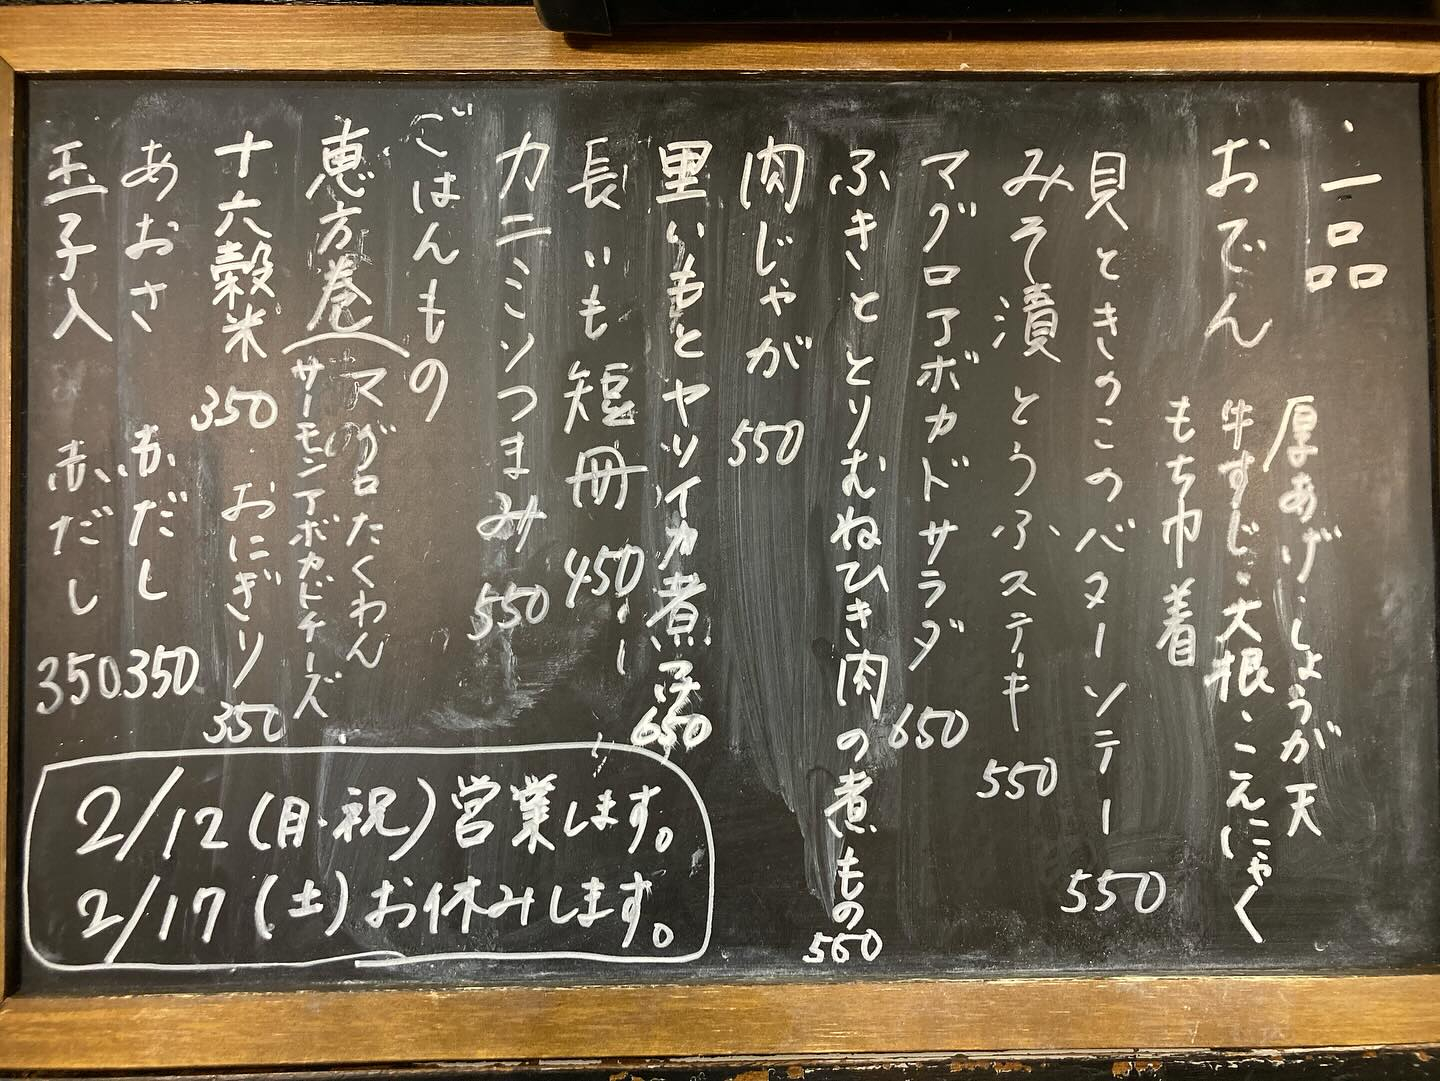 一品
おでん
厚あげ・しょうが天
牛すじ・大根・こんにゃく
もち巾着
貝ときのこのバターソテー 550
みそ漬とうふステーキ 550
マグロアボカドサラダ 650
ふきととりむねひき肉の煮もの 550
肉じゃが 550
里いもとヤリイカ煮 650
長いも短冊 450
カニミソつまみ 550
ごはんもの
恵方巻
マグロたくわん
サーモンアボカドチーズ
十六穀米おにぎり 350
350
あおさ赤だし 350
玉子入赤だし 350
2/12(月・祝)営業します。
2/17(土)お休みします。